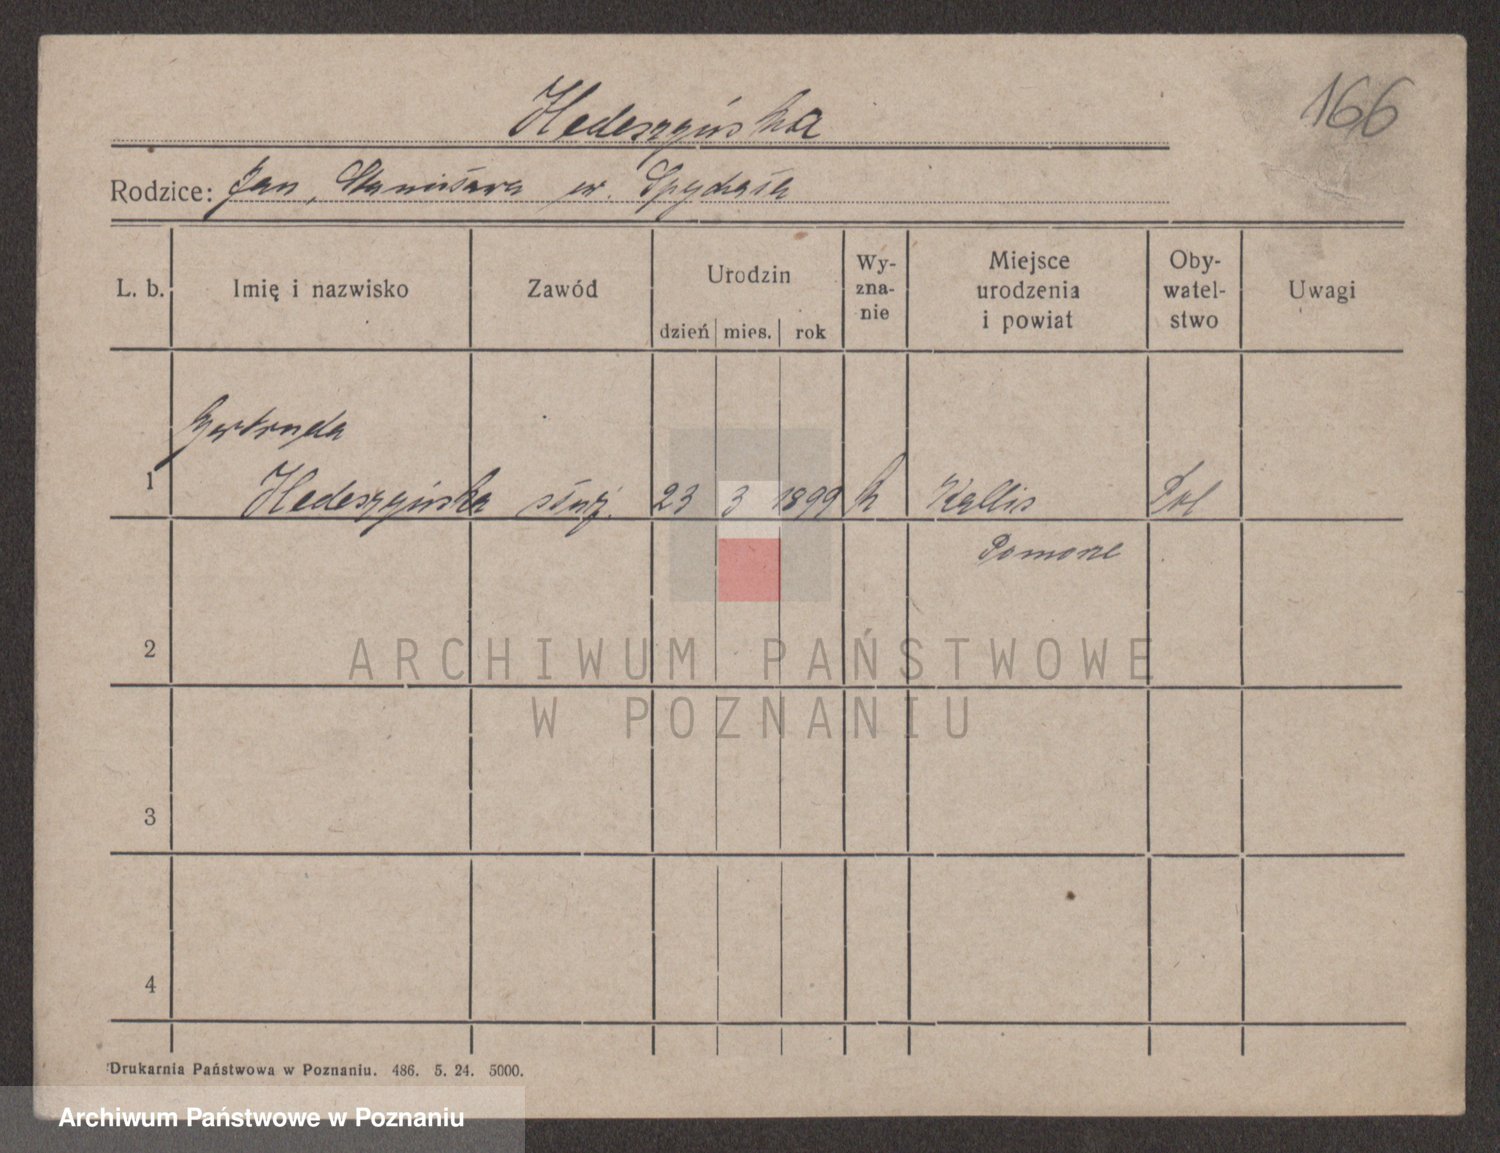 166
Hedeszyńska
Rodzice: Jan, Stanisława ur. Spychała
L. b. Imię i nazwisko Zawód Urodzin Wy- Miejsce Oby- Uwagi
zna- urodzenia watel-
nie i powiat stwo
dzień mies. rok
Gertruda
1 Hedeszyńska służ. 23 3 1899 k Kallis Pol
Pomorze
2
ARCHIWUM PAŃSTWOWE
W POZNANIU
3
4
Drukarnia Państwowa w Poznaniu. 486. 5. 24. 5000.
Archiwum Państwowe w Poznaniu